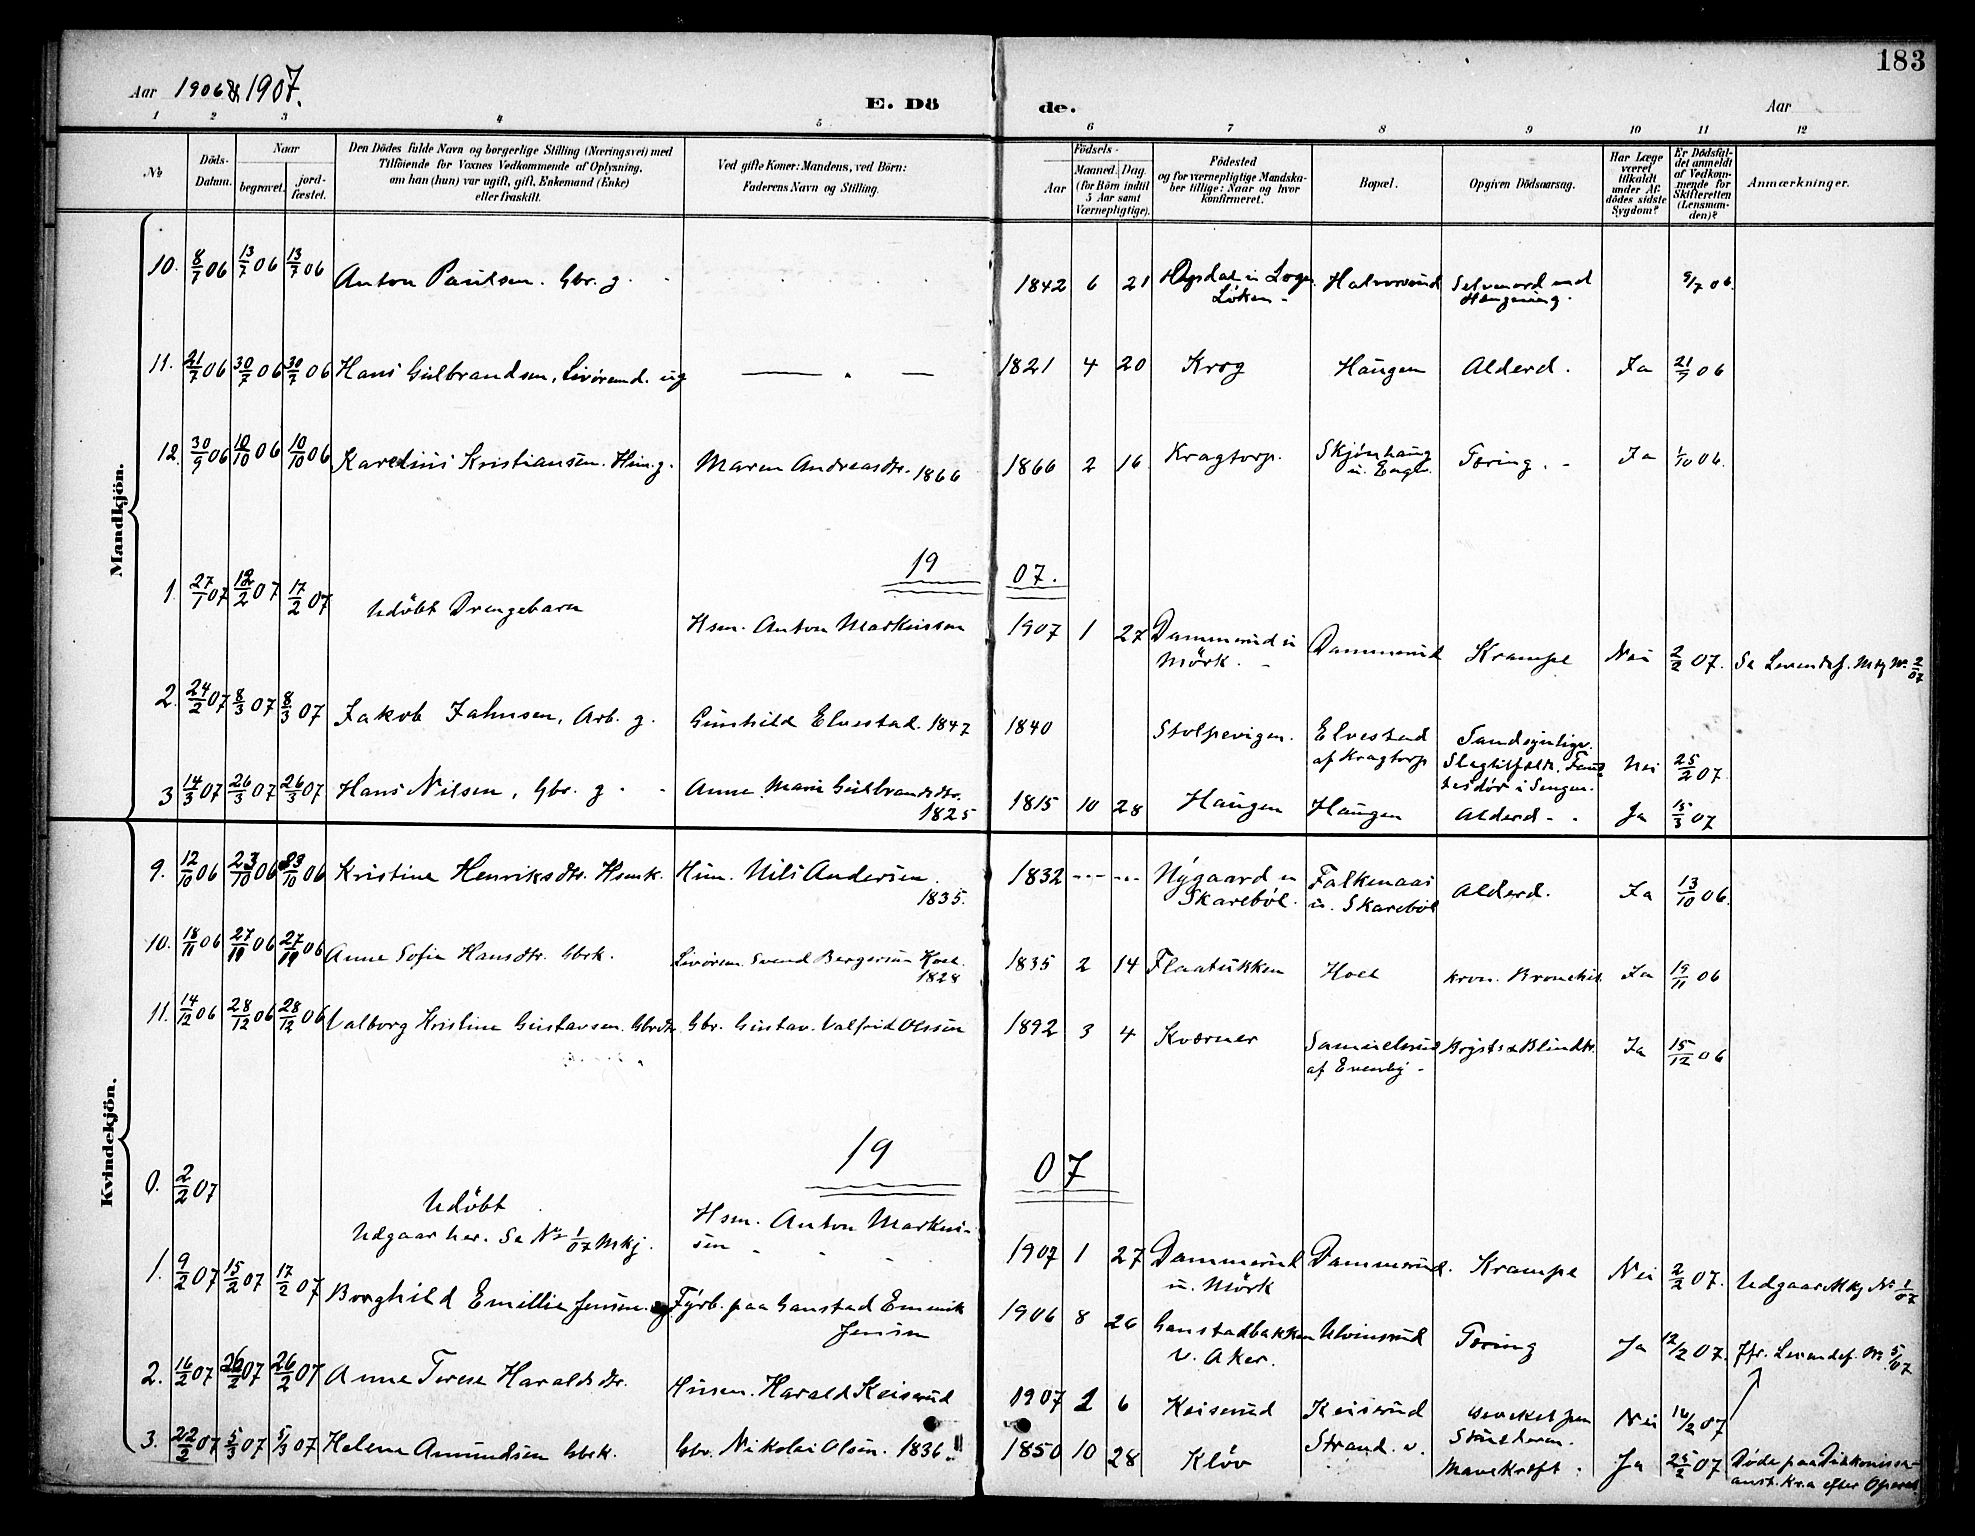 183
Aar 1906 & 1907. E. Dö de. Aar
1 2 3 4 5 6 7 8 9 10 11 12
№
Döds-Datum.
Naar
begravet.
jord-fæstet.
Den Dödes fulde Navn og borgerlige Stilling (Næringsvei) med
Tilföiende for Voxnes Vedkommende af Oplysning,
om han (hun) var ugift, gift, Enkemand (Enke)
eller fraskilt.
Ved gifte Koner: Mandens, ved Börn:
Faderens Navn og Stilling.
Födsels-
Aar
Maaned. Dag.
(for Börn indtil
5 Aar samt
Værnepligtige).
Födested
og for værnepligtige Mandska-
ber tillige: Naar og hvor
konfirmeret.
Bopæl.
Opgiven Dödsaarsag.
Har Læge
været
tilkaldt
under Af-
dödes sidste
Sygdom?
Er Dödsfal-
det anmeldt
af Vedkom-
mende for
Skifteretten
(Lensman-
den)?
Anmærkninger.
Mandkjön.
10. 8/7 06 13/7 06 13/7 06 Anton Paulsen. Gbr. g. 1842 6 21 Løken Halvorsrud Selvmord ved Hængning. 9/7 06.
11. 21/7 06 30/7 06 30/7 06 Hans Gulbrandsen, Livøremd. ug — " — 1821 4 20 Krog Haugen Alderd. Ja 21/7 06
12. 30/9 06 10/10 06 10/10 06 Karelius Kristiansen. Hsm. g. Maren Andreasdtr. 1866 1866 2 16 Kragtorp. Skjønhaug u. Engr. Tæring. - Ja 1/10 06.
19 07.
1. 27/1 07 12/2 07 17/2 07 Udøbt Drengebarn Hsm. Anton Markussen 1907 1 27 Dammerud u Mörk. - Dammerud Krampe Nei 2/2 07. Se Levendef. Mkj Nr. 2/07
2. 24/2 07 8/3 07 8/3 07 Jakob Jahnsen, Arb. g. Gunhild Elvestad. 1847 1840 Stolpevigen. Elvestad af Kragtorp Sandsynligv. Slagtilfælde. Fandtes død i Sengen. Nei 25/2 07.
3 14/3 07 26/3 07 26/3 07 Hans Nilsen, Gbr. g. Anne Marie Gulbrandsdtr. 1825 1815 10 28 Haugen Haugen Alderd - - Ja 15/3 07
Kvindekjön.
9. 12/10 06 23/10 06 23/10 06 Kristine Henriksdtr. Hsmk. Hsm. Nils Andersen. 1835. 1832 --- --- Nygaard u Skarebøl. Falkenaas u. Skarebøl Alderd. Ja 13/10 06.
10. 18/11 06 27/11 06 27/11 06 Anne Sofie Hansdtr. Gbrk. Livørem. Svend Bergersen Hoel. 1828 1835 2 14 Flaatukken Hoel kron. Bronchit. Ja 19/11 06
11. 14/12 06 28/12 06 28/12 06 Valborg Kristine Gustavsen. Gbrdtr. Gbr. Gustav Valfrid Olssön 1892 3 4 Kværner Samuelsrud af Evenby - Bryst & Blindt. Ja 15/12 06
19 07
0. 2/2 07 Udøbt Udgaar her. Se Nr 1/07 Mkj. Hsm. Anton Markussen 1907 1 27 Dammerud u. Mörk Dammerud. Krampe Nei 2/2 07. Udgaar Mkj Nr 1/07
1. 9/2 07 15/2 07 17/2 07 Borghild Emillie Jensen. ug. Fyrb. paa Ganstad Emmerik Jensen 1906 8 26 Ganstadbakken v. Aker. Ulvinsrud Tæring Ja 12/2 07. Jfr. Levendef. Nr. 5/07
2. 16/2 07 26/2 07 26/2 07 Anne Terese Haraldsdtr. Husm. Harald Keiserud 1907 2 6 Keiserud Keiserud Nei 16/2 07
3. 22/2 07 5/3 07 5/3 07 Helene Amundsen Gbrk. Gbr. Nikolai Olsen. 1836. 1850 10 28 Kløv Strand. v. Mavekræft. Ja 25/2 07 Døde paa Diakonisse-anst. Kra efter Operat.